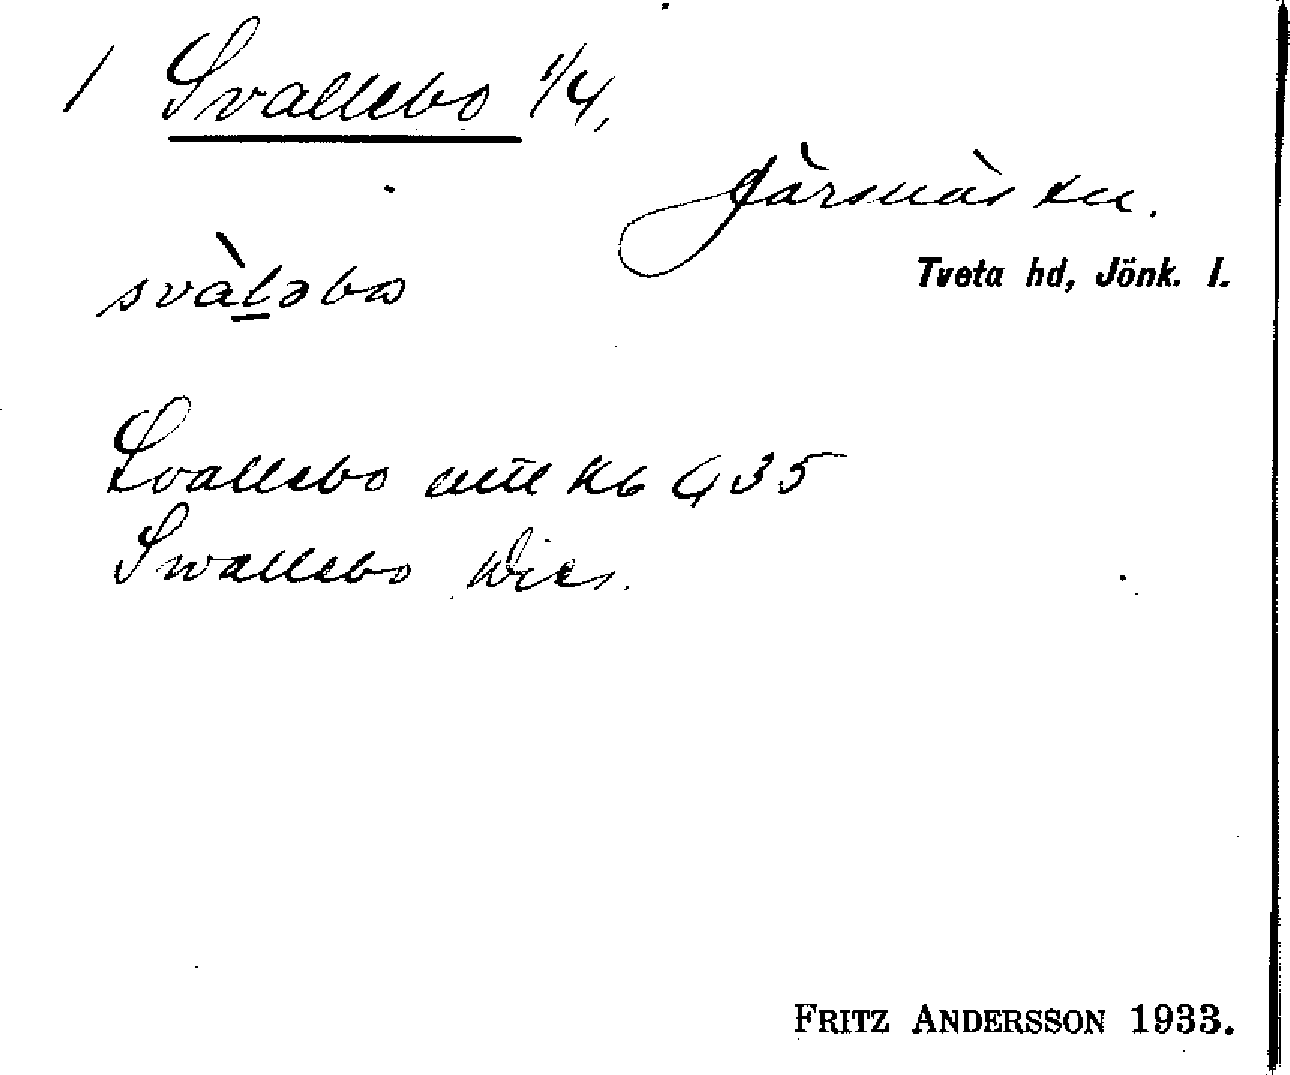 1 Svallebo 1/4,
Järsnäs sn.
Tveta hd, Jönk. l.
svàləbo
Svallebo Kb G 35
Swallebo Wies.
FRITZ ANDERSSON 1933.